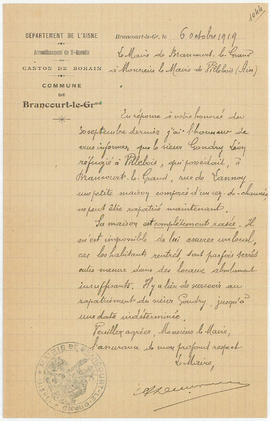 1044
DÉPARTEMENT DE L'AISNE
Arrondissement de St-Quentin
CANTON DE BOHAIN
COMMUNE
DE
Brancourt-le-Grand
Brancourt-le-Gr, le 6 octobre 1919
Le Maire de Brancourt le Grand
à Monsieur le Maire de Villebois (Ain)
En réponse à votre honorée du
30 septembre dernier, j'ai l'honneur de
vous informer que le sieur Gondry Léon
réfugié à Villebois, qui possédait, à
Brancourt le Grand, rue de Lannoy
une petite maison composée d'un rez-de-chaussée
ne peut être rapatrié maintenant.
Sa maison est complètement rasée. Il
est impossible de lui assurer un local,
ces les habitants rentrés sont parfois serrés
outre mesure dans des locaux absolument
insuffisants. Il y a lieu de surseoir au
rapatriement du sieur Gondry jusqu'à
une date indéterminée.
Veuillez agréer, Monsieur le Maire,
l'assurance de mon profond respect
Le Maire,